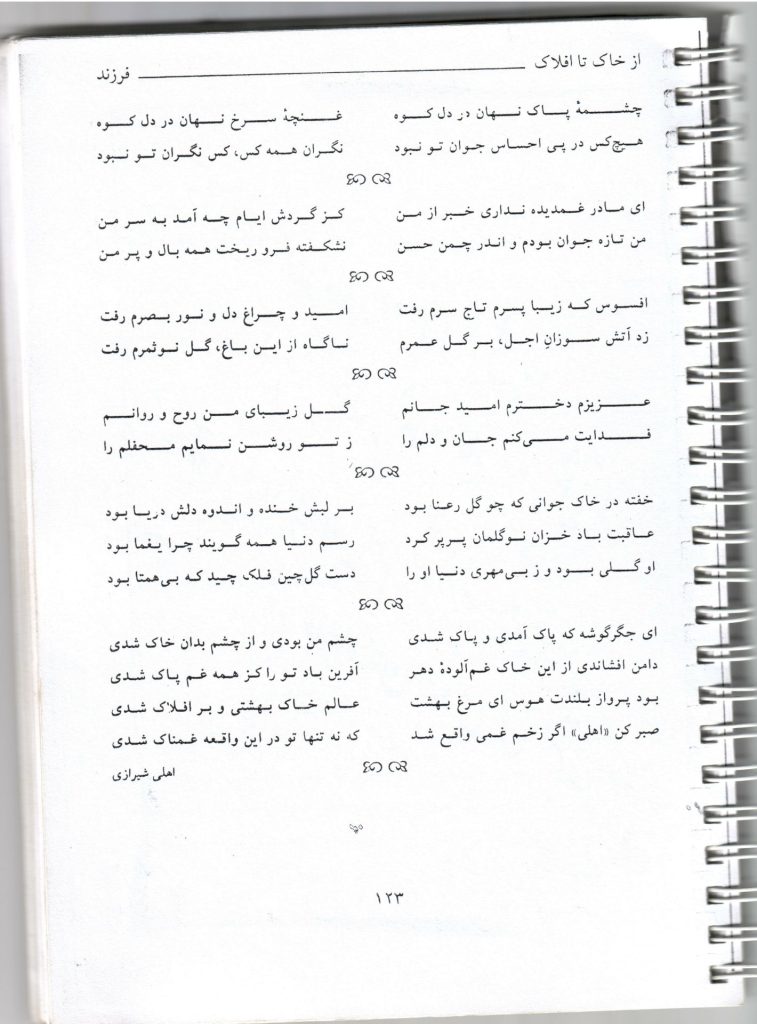 از خاک تا افلاک فرزند
چشمهٔ پاک نهان در دل کوه غنچهٔ سرخ نهان در دل کوه
هیچ‌کس در پی احساس جوان تو نبود نگران همه کس، کس نگران تو نبود
ای مادر غمدیده نداری خبر از من کز گردش ایام چه آمد به سر من
من تازه جوان بودم و اندر چمن حسن نشکفته فرو ریخت همه بال و پر من
افسوس که زیبا پسرم تاج سرم رفت امید و چراغ دل و نور بصرم رفت
زد آتش سوزانِ اجل، بر گل عمرم ناگاه از این باغ، گل نوثمرم رفت
عزیزم دخترم امید جانم گل زیبای من روح و روانم
فدایت می‌کنم جان و دلم را ز تو روشن نمایم محفلم را
خفته در خاک جوانی که چو گل رعنا بود بر لبش خنده و اندوه دلش دریا بود
عاقبت باد خزان نوگلمان پرپر کرد رسم دنیا همه گویند چرا یغما بود
او گلی بود و ز بی‌مهری دنیا او را دست گل‌چین فلک چید که بی‌همتا بود
ای جگرگوشه که پاک آمدی و پاک شدی چشم من بودی و از چشم بدان خاک شدی
دامن افشاندی از این خاک غم‌آلودهٔ دهر آفرین باد تو را کز همه غم پاک شدی
بود پرواز بلندت هوس ای مرغ بهشت عالم خاک بهشتی و بر افلاک شدی
صبر کن «اهلی» اگر زخم غمی واقع شد که نه تنها تو در این واقعه غمناک شدی
اهلی شیرازی
۱۲۳